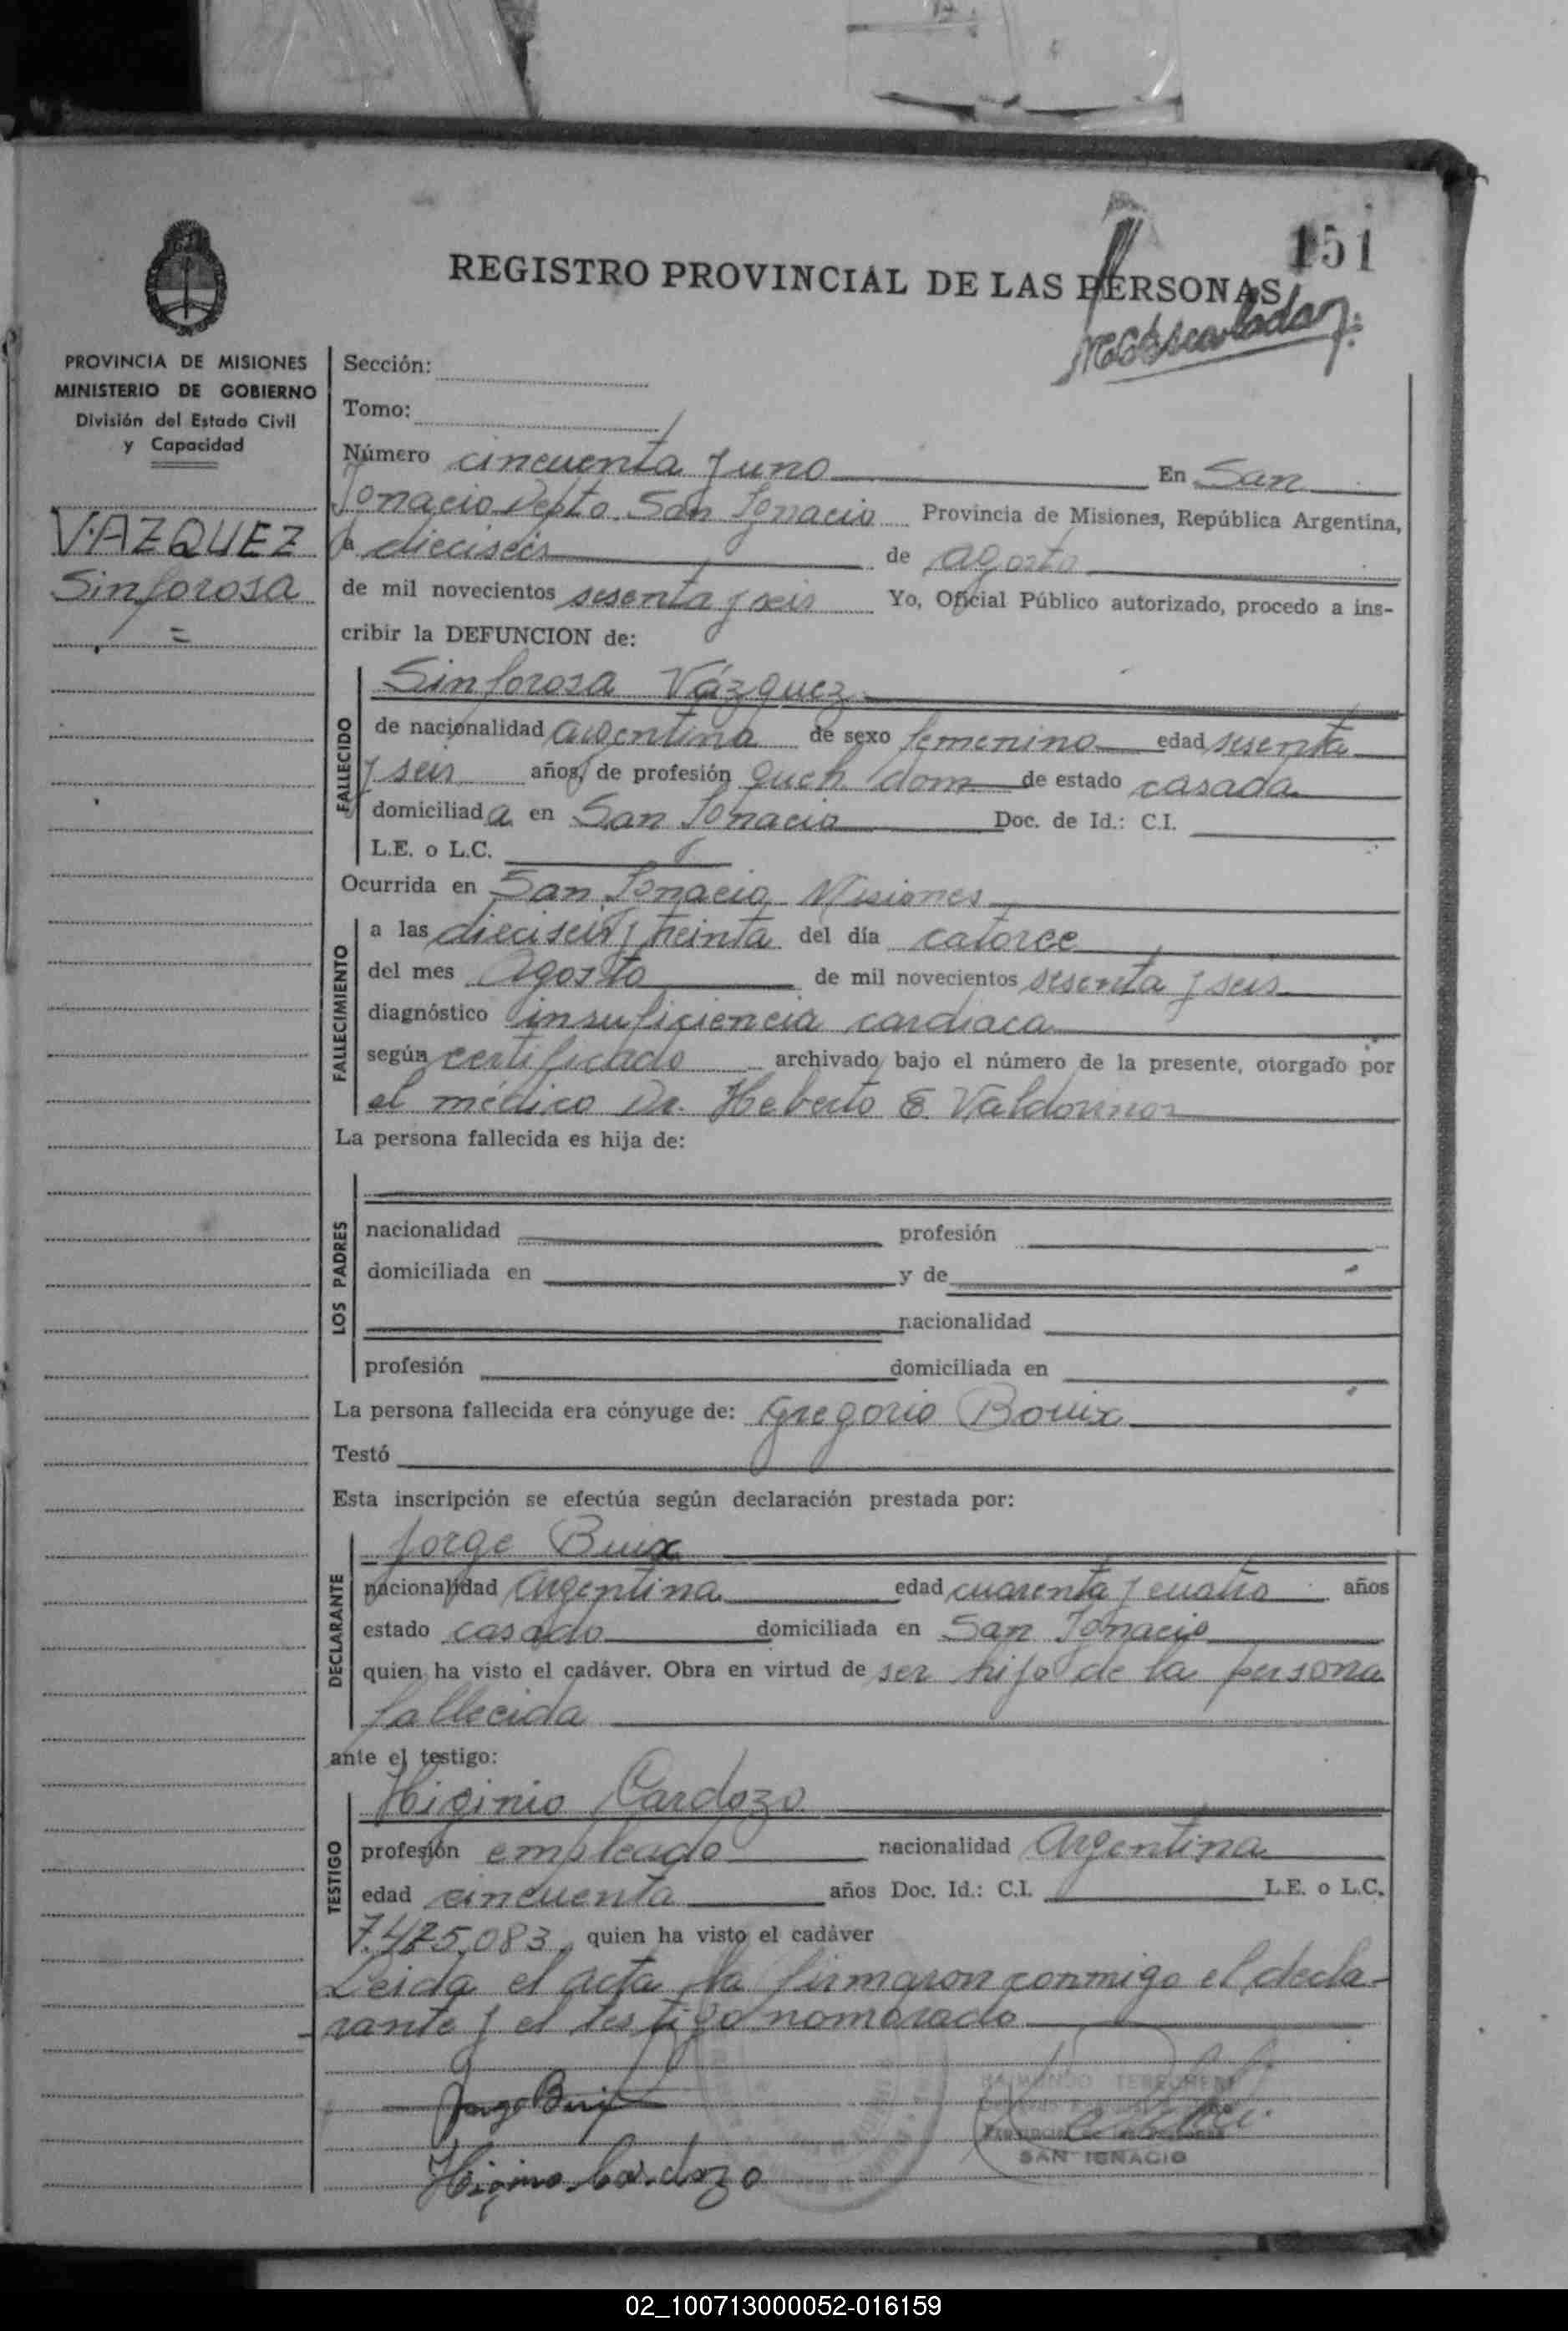 151
REGISTRO PROVINCIAL DE LAS PERSONAS
PROVINCIA DE MISIONES
MINISTERIO DE GOBIERNO
División del Estado Civil
y Capacidad
VAZQUEZ
Sinforosa
Sección:
Tomo:
Número cincuenta y uno En San
Ignacio Depto. San Ignacio Provincia de Misiones, República Argentina,
a dieciseis de agosto
de mil novecientos sesenta y seis Yo, Oficial Público autorizado, procedo a ins-
cribir la DEFUNCION de:
FALLECIDO
Sinforosa Vázquez
de nacionalidad argentina de sexo femenino edad sesenta
y seis años, de profesión queh dom de estado casada
domiciliada en San Ignacio Doc. de Id.: C.I.
L.E. o L.C.
Ocurrida en San Ignacio Misiones
FALLECIMIENTO
a las dieciseis y treinta del día catorce
del mes Agosto de mil novecientos sesenta y seis
diagnóstico insuficiencia cardiaca
según certificado archivado bajo el número de la presente, otorgado por
el médico Dr. Heberto E
La persona fallecida es hija de:
LOS PADRES
nacionalidad profesión
domiciliada en y de
nacionalidad
profesión domiciliada en
La persona fallecida era cónyuge de: Gregorio Bouix
Testó
Esta inscripción se efectúa según declaración prestada por:
DECLARANTE
Jorge Buix
nacionalidad Argentina edad cuarenta y cuatro años
estado casado domiciliada en San Ignacio
quien ha visto el cadáver. Obra en virtud de ser hijo de la persona
fallecida
ante el testigo:
TESTIGO
Higinio Cardozo
profesión empleado nacionalidad Argentina
edad cincuenta años Doc. Id.: C.I. L.E. o L.C.
7.475.083, quien ha visto el cadáver
Leida el acta, la firmaron conmigo el decla-
rante y el testigo nombrado
Jorge Buix
Higinio Cardozo
RAIMUNDO
SAN IGNACIO
02_100713000052-016159